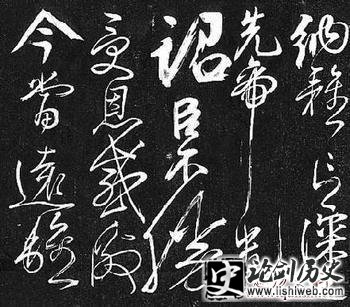 納雅言深
先帝
詔臣不勝
受恩感激
今當遠離
史 论剑历史
www.lishiweb.com